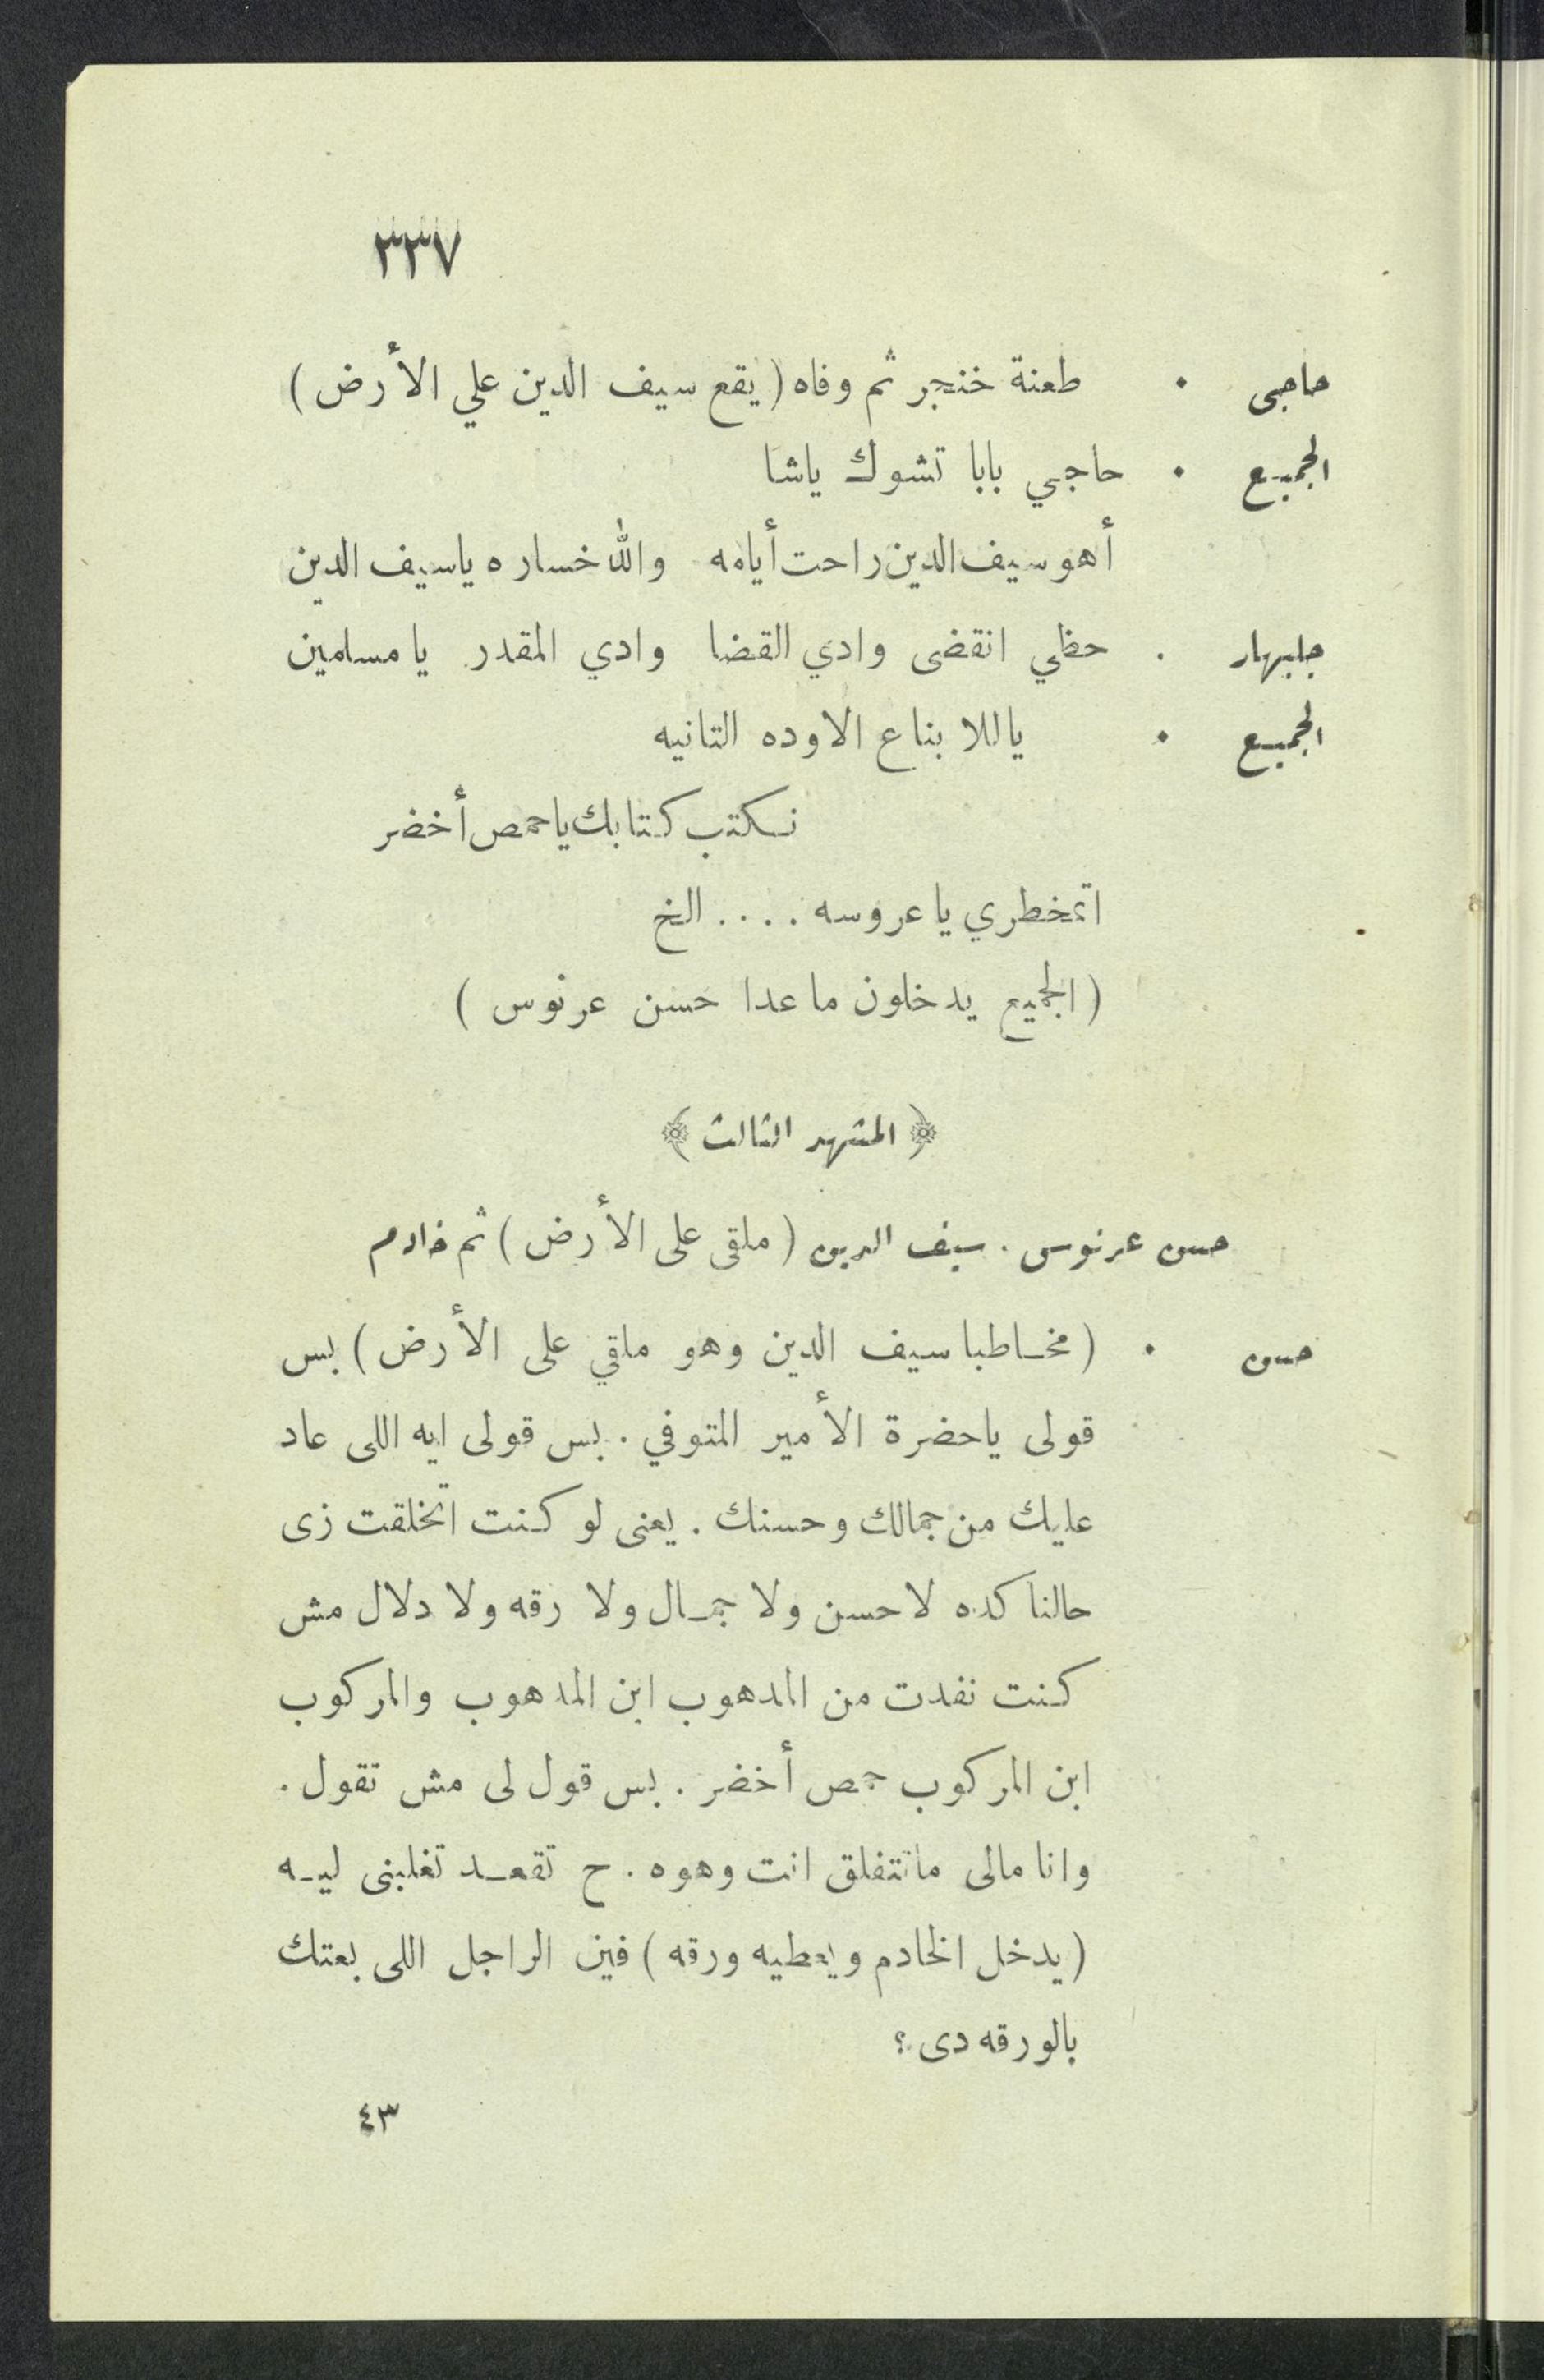 ٣٣٧
حاجى . طعنة خنجر ثم وفاه (يقع سيف الدين علي الأرض)
الجميع . حاجي بابا تشوك ياشا
أهو سيف الدين راحت أيامه والله خساره ياسيف الدين
جلبهار . حظي انقضى وادي القضا وادي المقدر يا مسلمين
الجميع . ياللا بناع الاوده التانيه
نكتب كتابك ياحمص أخضر
اتمخطري يا عروسه .... الخ
(الجميع يدخلون ما عدا حسن عرنوس)
﴿ المشهد الثالث ﴾
حسن عرنوس . سيف الدين (ملقى على الأرض) ثم خادم
حسن . (مخاطبا سيف الدين وهو ملقي على الأرض) بس
قولى ياحضرة الأمير المتوفي . بس قولى ايه اللى عاد
عليك من جمالك وحسنك . يعنى لو كنت اتخلقت زى
حالنا كده لا حسن ولا جمال ولا رقه ولا دلال مش
كنت نفدت من المدهوب ابن المدهوب والمركوب
ابن المركوب حمص أخضر . بس قول لى مش تقول .
وانا مالى ماتتفلق انت وهوه . ح تقعد تغلبنى ليه
(يدخل الخادم ويعطيه ورقه) فين الراجل اللى بعتك
بالورقه دى ؟
٤٣